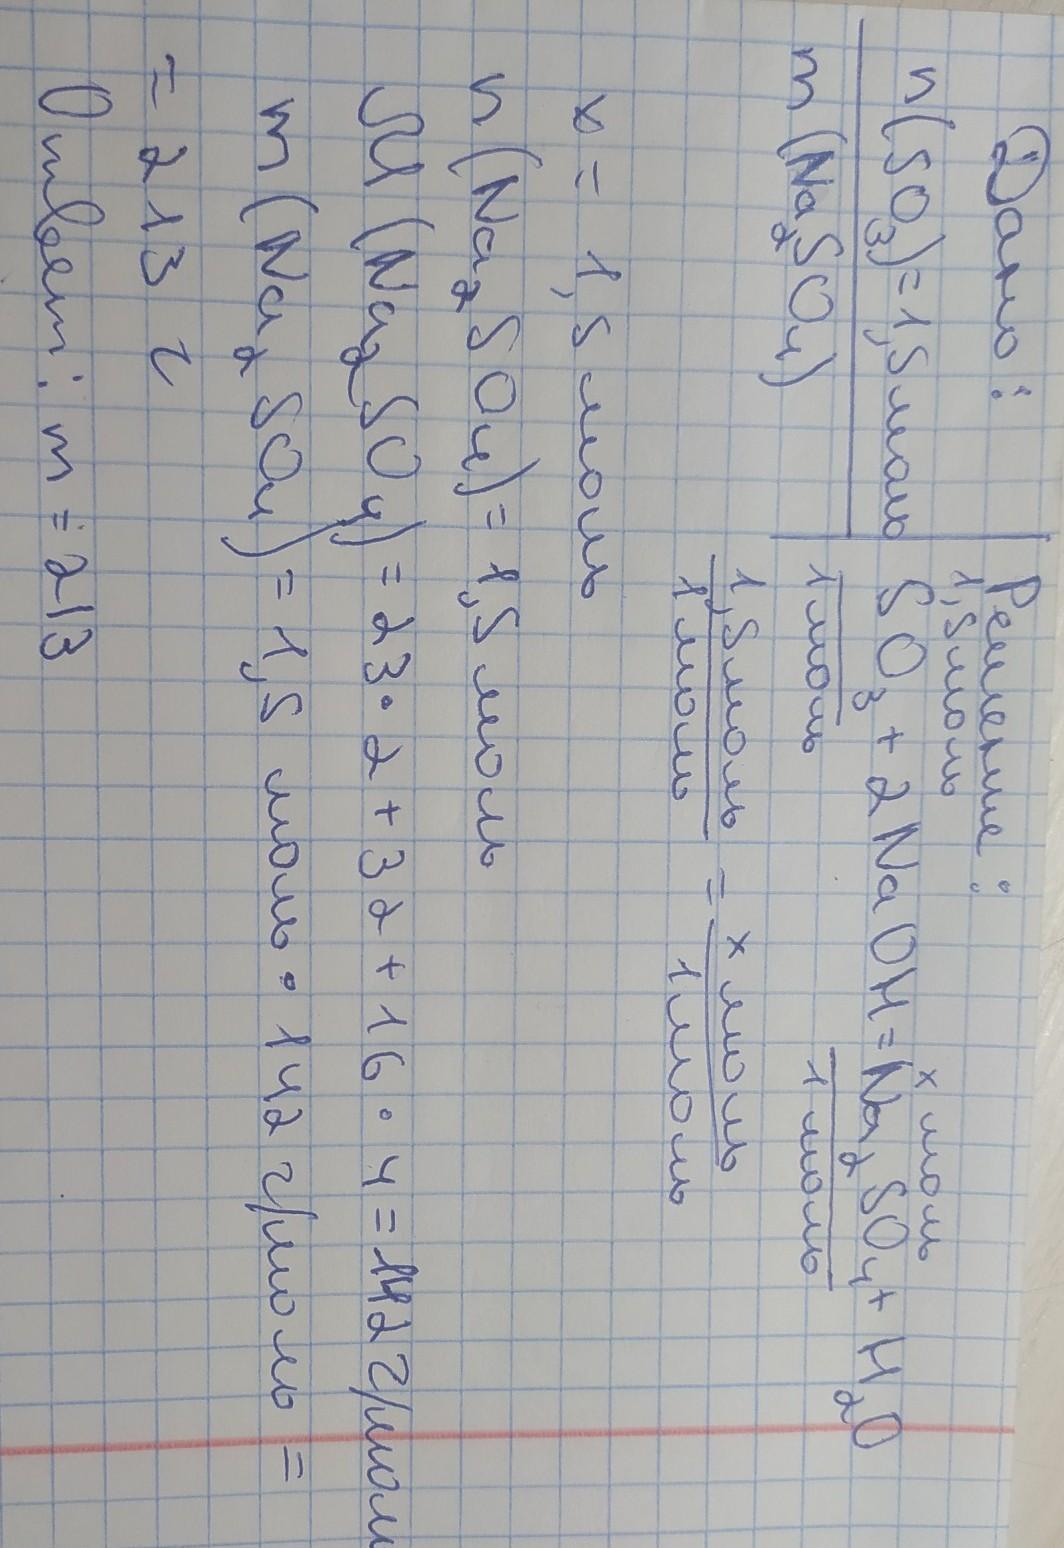 Дано:
n(SO3)=1,5моль
m(Na2SO4)
Решение:
1,5моль x моль
SO3+2NaOH=Na2SO4+H2O
1моль 1моль
1,5моль = x моль
1моль 1моль
x = 1,5моль
n(Na2SO4)=1,5моль
M(Na2SO4)=23·2+32+16·4=142г/моль
m(Na2SO4)=1,5 моль·142г/моль=
=213 г
Ответ: m=213